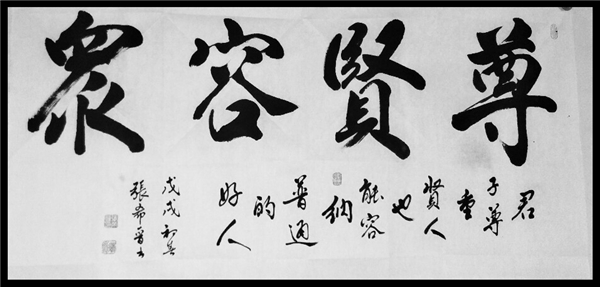 尊賢容衆
君
子尊
重
賢人
也
能容
納
普通
的
好人
戊戌初
張希晋书